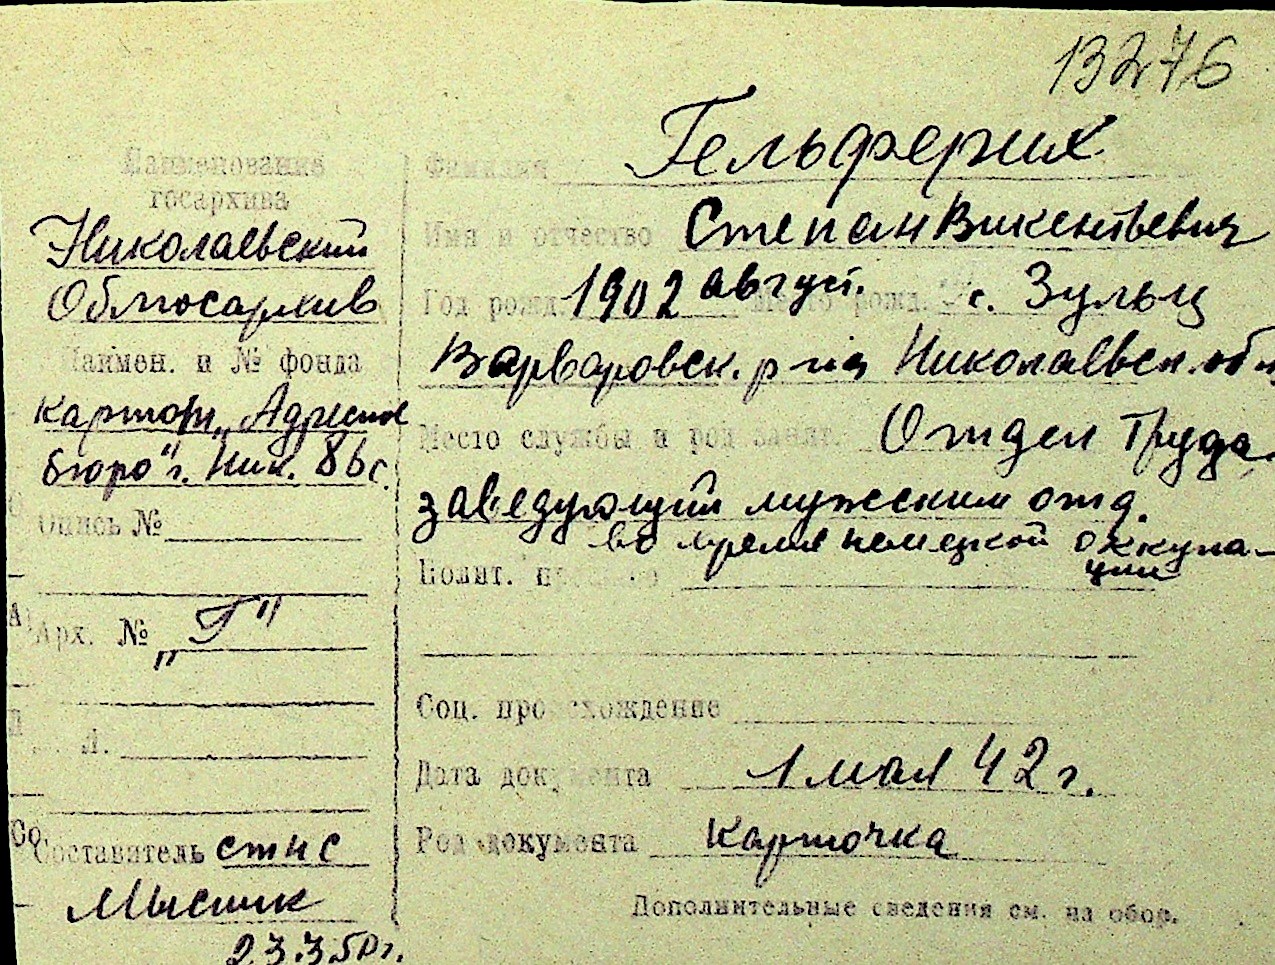 13276
Наименование
госархива
Николаевский
Облгосархив
Наимен. и № фонда
картот. „Адресное
бюро" г. Ник. 86с.
Опись №
Арх. № „Г"
Л.
Составитель стнс
Мысник
23.3.50 г.
Фамилия Гельферих
Имя и отчество Степан Викентьевич
Год рожд. 1902 август. Место рожд. с. Зульц
Варваровск. р-на Николаевск. обл
Место службы и род занят. Отдел Труда-
заведующий мужским отд.
во время немецкой оккупа-
ции
Полит.
Соц. происхождение
Дата документа 1 мая 42 г.
Род документа Карточка
Дополнительные сведения см. на обор.